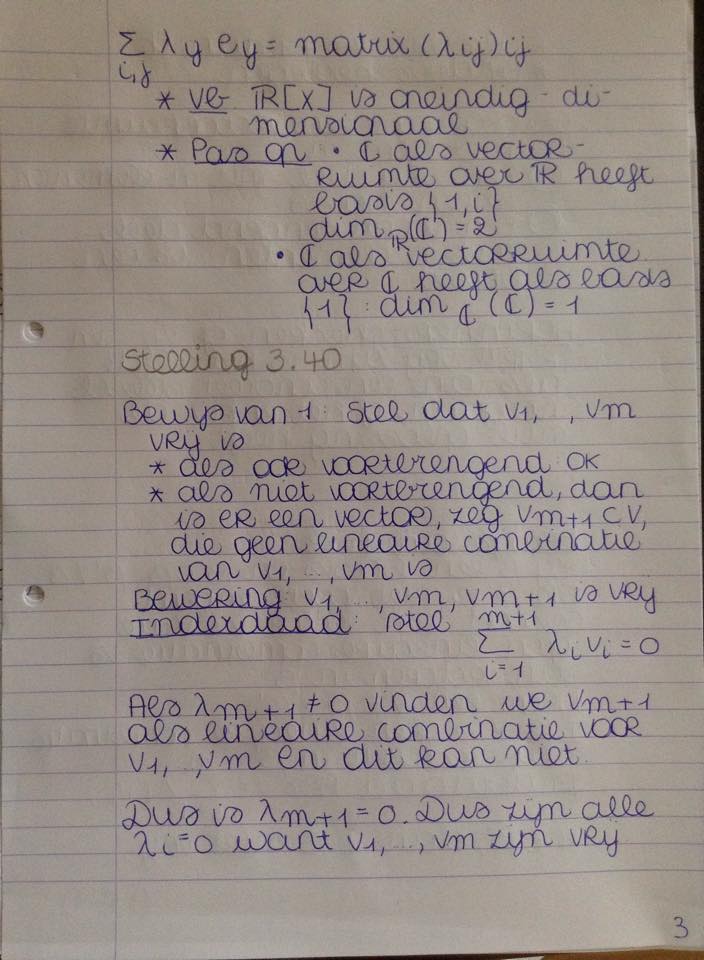 Σ λij eij = matrix (λij)ij
i,j
* vb ℝ[X] is oneindig-di-
mensionaal
* Pas op • ℂ als vector-
ruimte over ℝ heeft
basis {1,i}
dim ℝ(ℂ) = 2
• ℂ als vectorruimte
over ℂ heeft als basis
{1} : dim ℂ (ℂ) = 1
Stelling 3.40
Bewijs van 1: Stel dat v1, , vm
vrij is
* als ook voortbrengend OK
* als niet voortbrengend, dan
is er een vector, zeg vm+1 ⊂ V,
die geen lineaire combinatie
van v1, ..., vm is
Bewering: v1, ..., vm, vm+1 is vrij
Inderdaad: stel m+1
Σ λi vi = 0
i=1
Als λm+1 ≠ 0 vinden we vm+1
als lineaire combinatie voor
v1, .., vm en dit kan niet.
Dus is λm+1 = 0. Dus zijn alle
λi=0 want v1, ..., vm zijn vrij
3